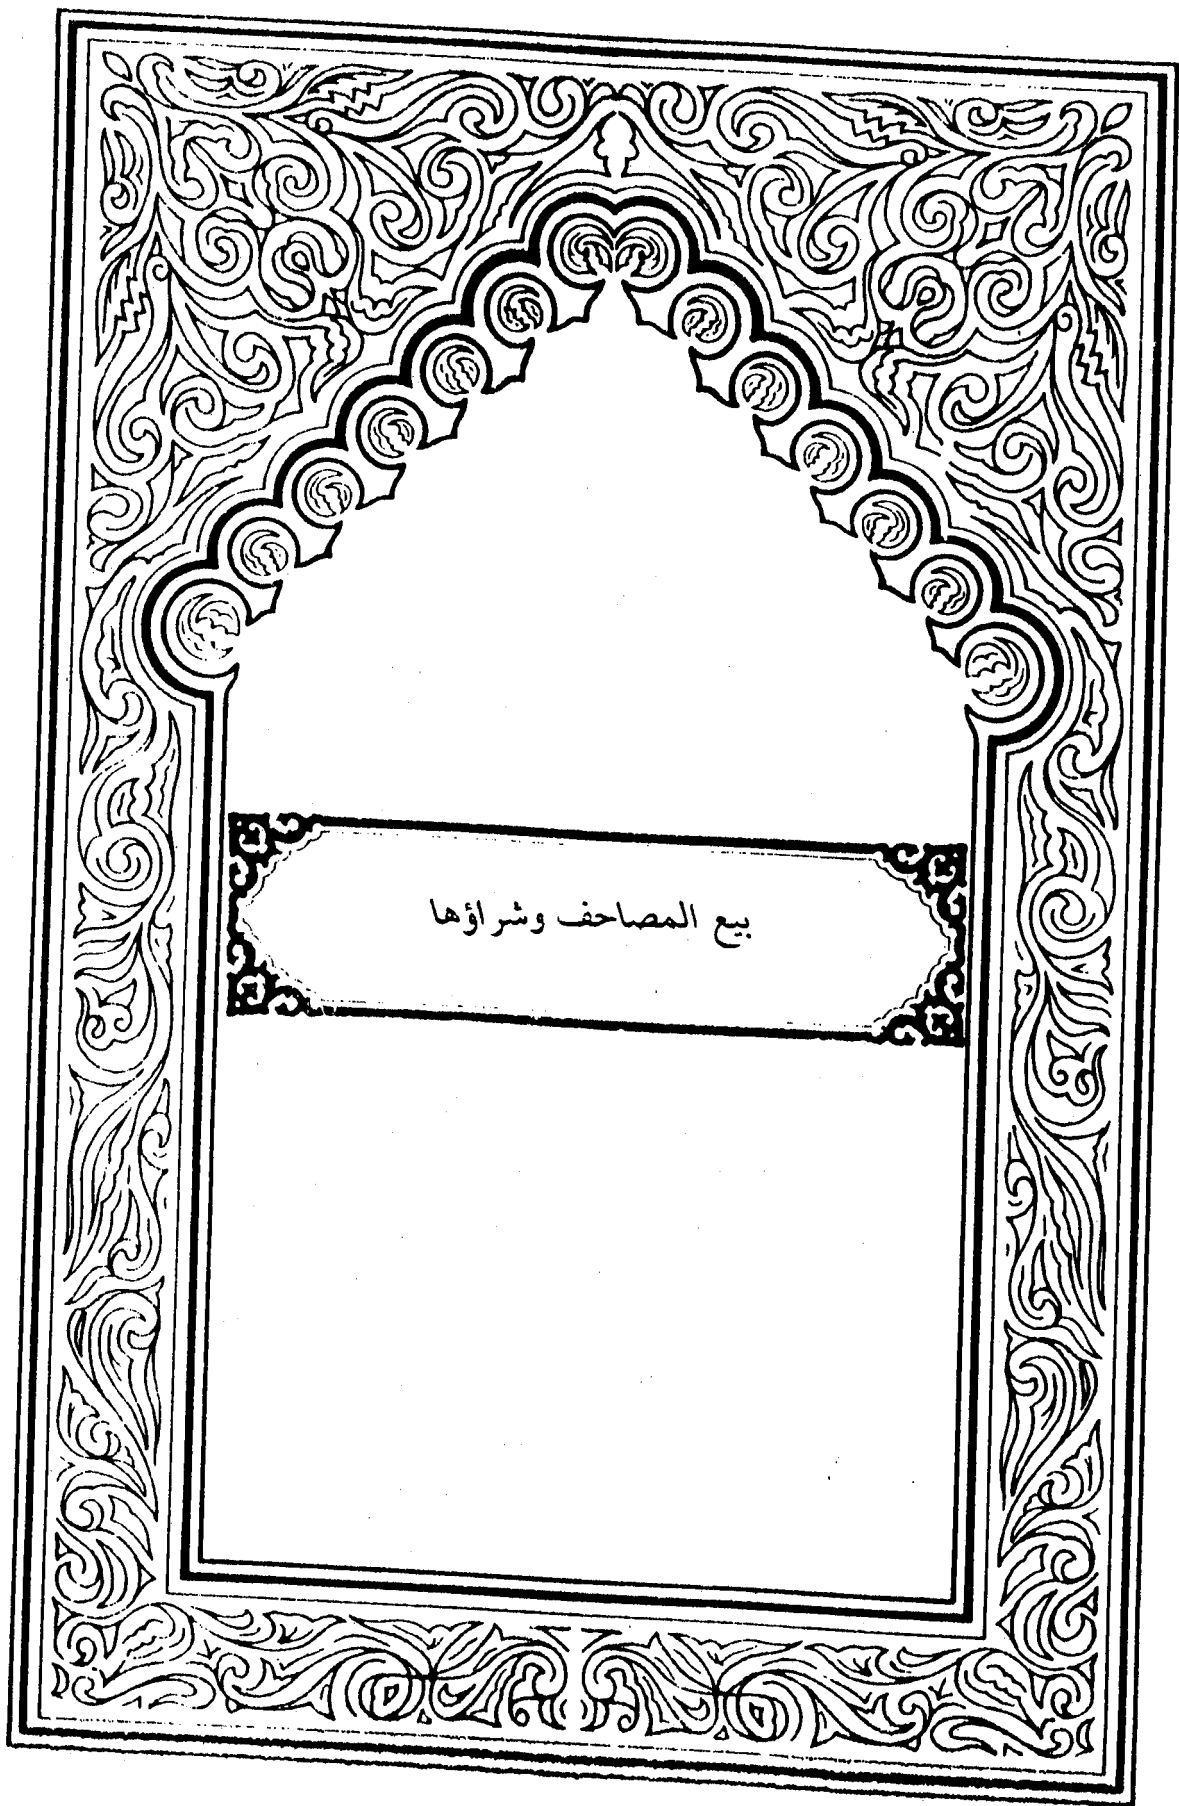 بيع المصاحف وشراؤها